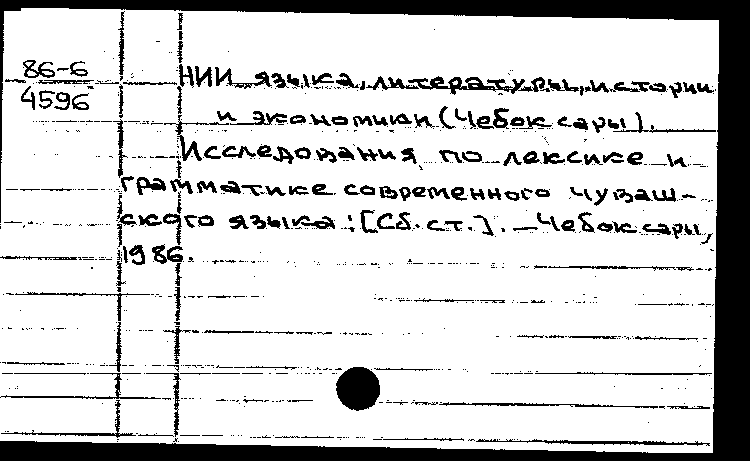 86-6
4596
НИИ языка, литературы, истории
и экономики (Чебоксары).
Исследования по лексике и
грамматике современного чуваш-
ского языка: [Сб. ст.]. — Чебоксары,
1986.